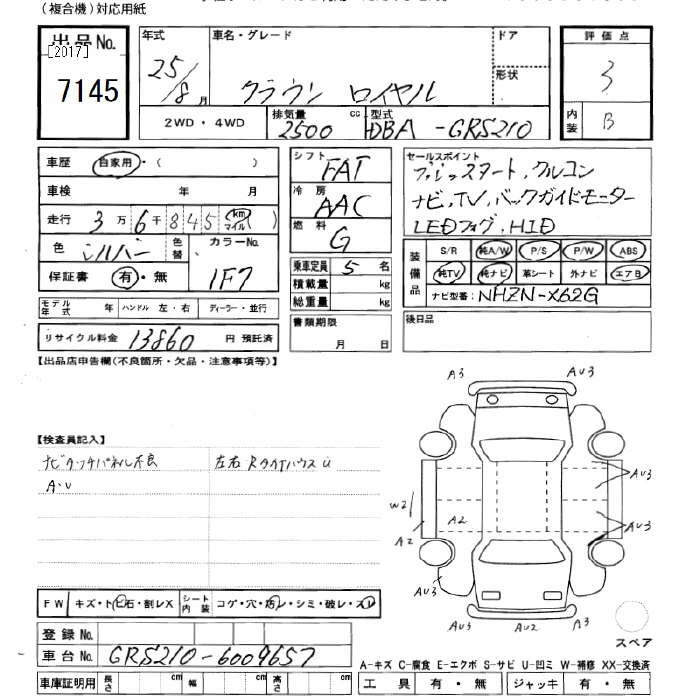 (複合機)対応用紙
出品No.
[2017]
7145
年式 25/8月
車名・グレード クラウン ロイヤル
ドア
形状
評価点 3
内装 B
2WD・4WD
排気量 2500 cc
型式 DBA-GRS210
車歴 自家用・( )
車検 年 月
走行 3万6千845 km マイル )
色 シルバー 色替 カラーNo. 1F7
保証書 有・無
モデル年式 年 ハンドル 左・右 ディーラー・並行
リサイクル料金 13860 円 預託済
シフト FAT
冷房 AAC
燃料 G
乗車定員 5 名
積載量 kg
総重量 kg
書類期限
月 日
セールスポイント
プッシュスタート,クルコン
ナビ,TV,バックガイドモニター
LEDフォグ,HID
装備品
S/R 純A/W P/S P/W ABS
純TV 純ナビ 革シート 外ナビ エアB
ナビ型番: NHZN-X62G
後日品
【出品店申告欄(不良箇所・欠品・注意事項等)】
【検査員記入】
ナビタッチパネル不良 左右Rタイヤハウス U
A・U
A3 AU3
AU3
W2
A2
A2
AU3
AU3
AU3 AU2 A3
スペア
FW キズ・トビ石・割レX シート内装 コゲ・穴・汚レ・シミ・破レ・スレ
登録No.
車台No. GRS210-6009657
車庫証明用 長さ cm 幅 cm 高さ cm
A-キズ C-腐食 E-エクボ S-サビ U-凹ミ W-補修 XX-交換済
工具 有・無 ジャッキ 有・無